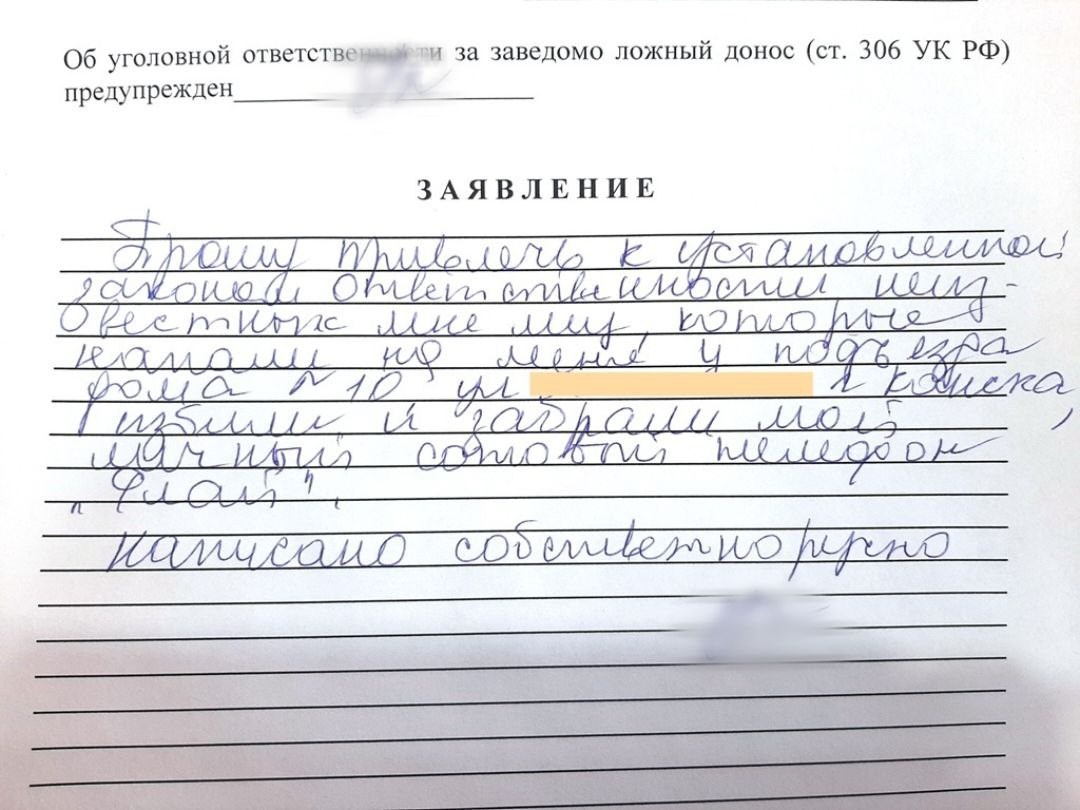 Об уголовной ответственности за заведомо ложный донос (ст. 306 УК РФ)
предупрежден
ЗАЯВЛЕНИЕ
Прошу привлечь к установленной
законом ответственности неиз-
вестных мне лиц, которые
напали на меня у подъезда
дома № 10 ул г Канска,
избили и забрали мой
личный сотовый телефон
"Флай".
написано собственноручно